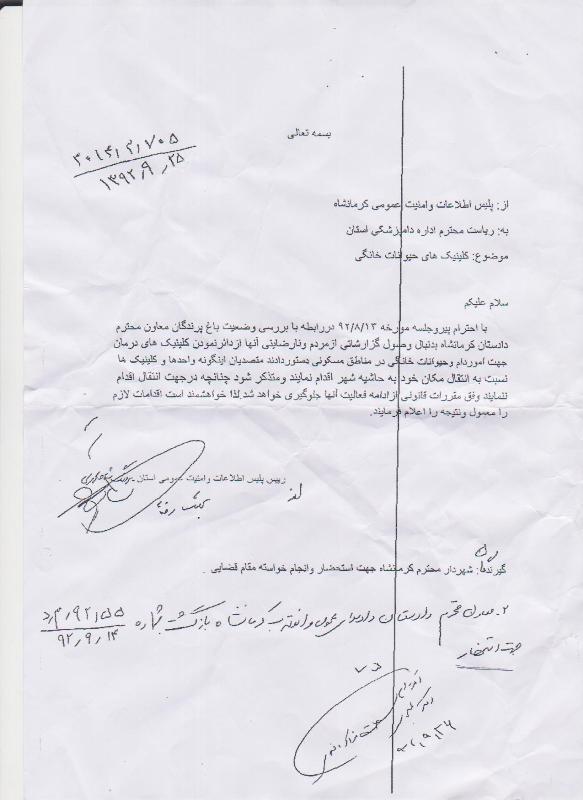 بسمه تعالی
۳۰۱۴/۲/۷۰۵
۱۳۹۲/۹/۲۵
از: پلیس اطلاعات وامنیت عمومی کرمانشاه
به: ریاست محترم اداره دامپزشکی استان
موضوع: کلینیک های حیوانات خانگی
سلام علیکم
با احترام پیروجلسه مورخه ۹۲/۸/۱۳ دررابطه با بررسی وضعیت باغ پرندگان معاون محترم
دادستان کرمانشاه بدنبال وصول گزارشاتی ازمردم ونارضایتی آنها ازدائرنمودن کلینیک های درمان
جهت اموردام وحیوانات خانگی در مناطق مسکونی دستوردادند متصدیان اینگونه واحدها و کلینیک ها
نسبت به انتقال مکان خود به حاشیه شهر اقدام نمایند ومتذکر شود چنانچه درجهت انتقال اقدام
ننمایند وفق مقررات قانونی ازادامه فعالیت آنها جلوگیری خواهد شد.لذا خواهشمند است اقدامات لازم
را معمول ونتیجه را اعلام فرمایند.
رییس پلیس اطلاعات وامنیت عمومی استان
گیرنده: شهردار محترم کرمانشاه جهت استحضار وانجام خواسته مقام قضایی
۲- محترم دادستان دادسرای عمومی و انقلاب کرمانشاه بازگشت بشماره ۹۲/۵۵
۹۲/۹/۱۴
جهت استحضار